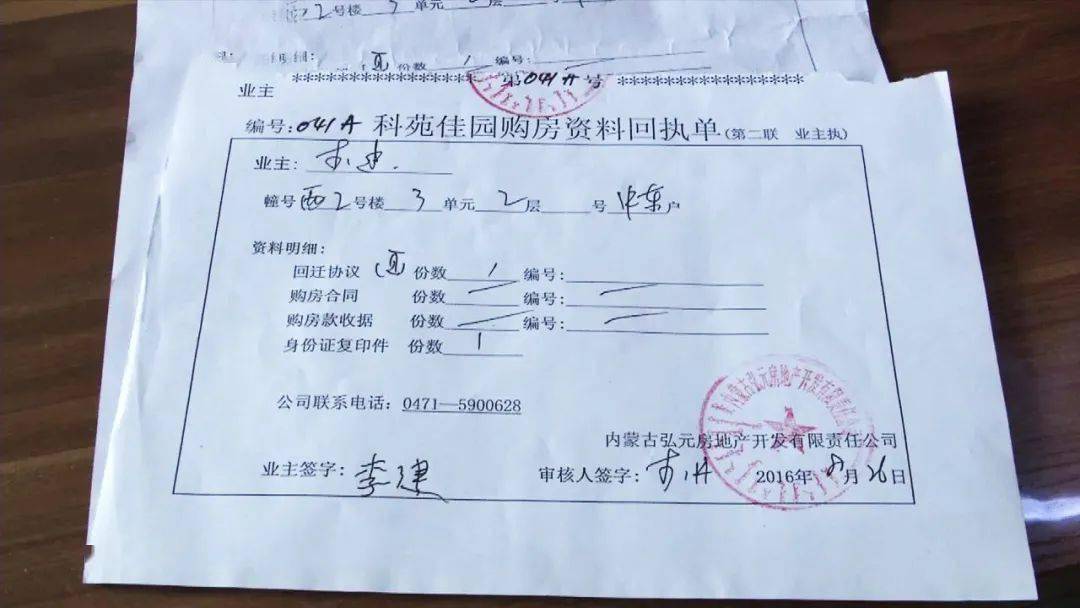 2号楼 3 单元 2 层
份数 1 编号:
******************第041A号******************
业主
编号:041A 科苑佳园购房资料回执单(第二联 业主执)
业主:
幢号西2号楼 3 单元 2 层 号 中东户
资料明细:
回迁协议 份数 1 编号:
购房合同 份数 编号:
购房款收据 份数 编号:
身份证复印件 份数 1
公司联系电话:0471—5900628
内蒙古弘元房地产开发有限责任公司
内蒙古弘元房地产开发有限责任公司
业主签字:李建 审核人签字: 2016年8月26日